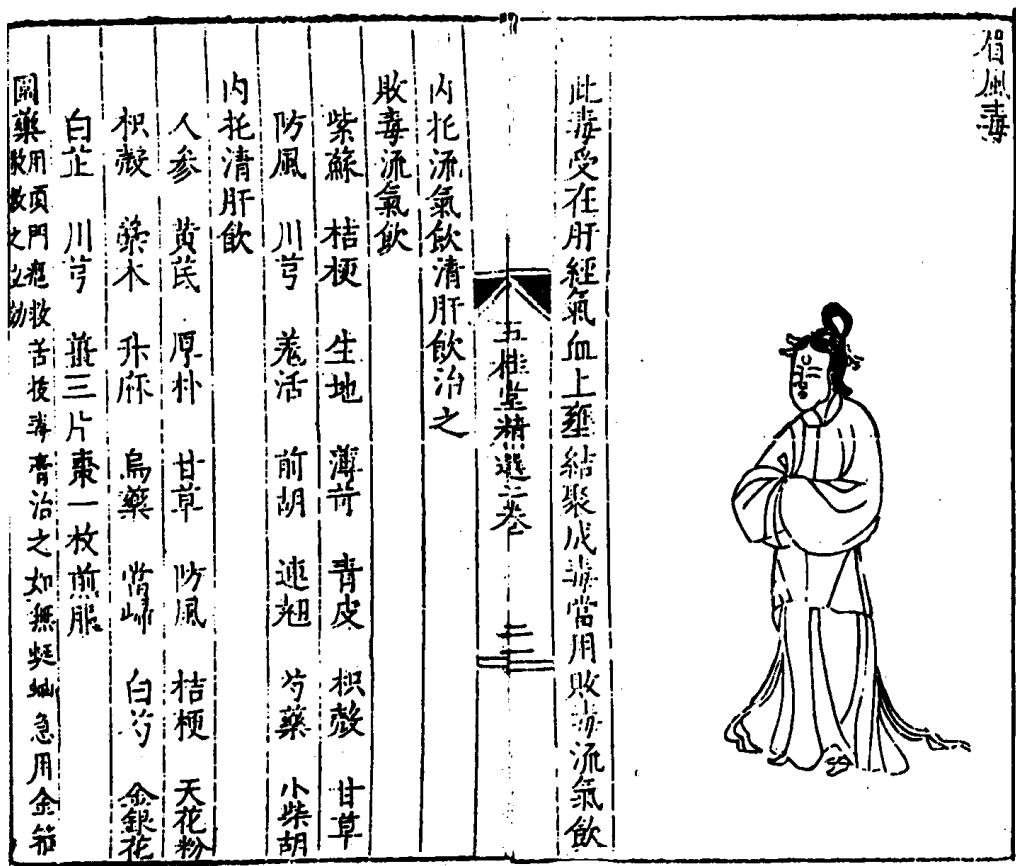 眉風毒
此毒受在肝經氣血上壅結聚成毒當用敗毒流氣飲
五桂堂精選二卷 二
內托流氣飲清肝飲治之
敗毒流氣飲
紫蘇 桔梗 生地 薄荷 青皮 枳殼 甘草
防風 川芎 羗活 前胡 連翹 芍藥 小柴胡
內托清肝飲
人參 黃芪 厚朴 甘草 防風 桔梗 天花粉
枳殼 藥木 升麻 烏藥 當歸 白芍 金銀花
白芷 川芎 薑三片棗一枚煎服
圍藥用頂門 救苦拔毒膏治之如無蜈蚣急用金
敷敷之立効